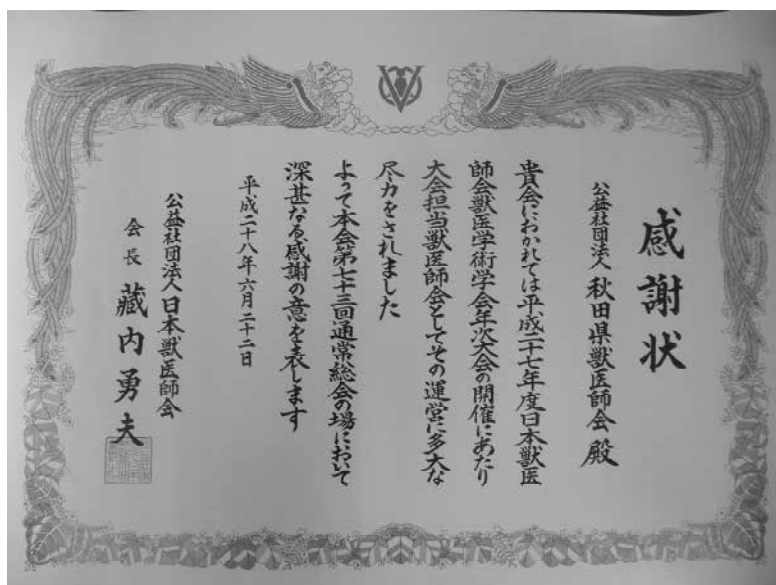 感謝状
公益社団法人 秋田県獣医師会 殿
貴会におかれては平成二十七年度日本獣医
師会獣医学術学会年次大会の開催にあたり
大会担当獣医師会としてその運営に多大な
尽力をされました
よって本会第七十三回通常総会の場において
深甚なる感謝の意を表します
平成二十八年六月二十二日
公益社団法人 日本獣医師会
会長 藏内勇夫